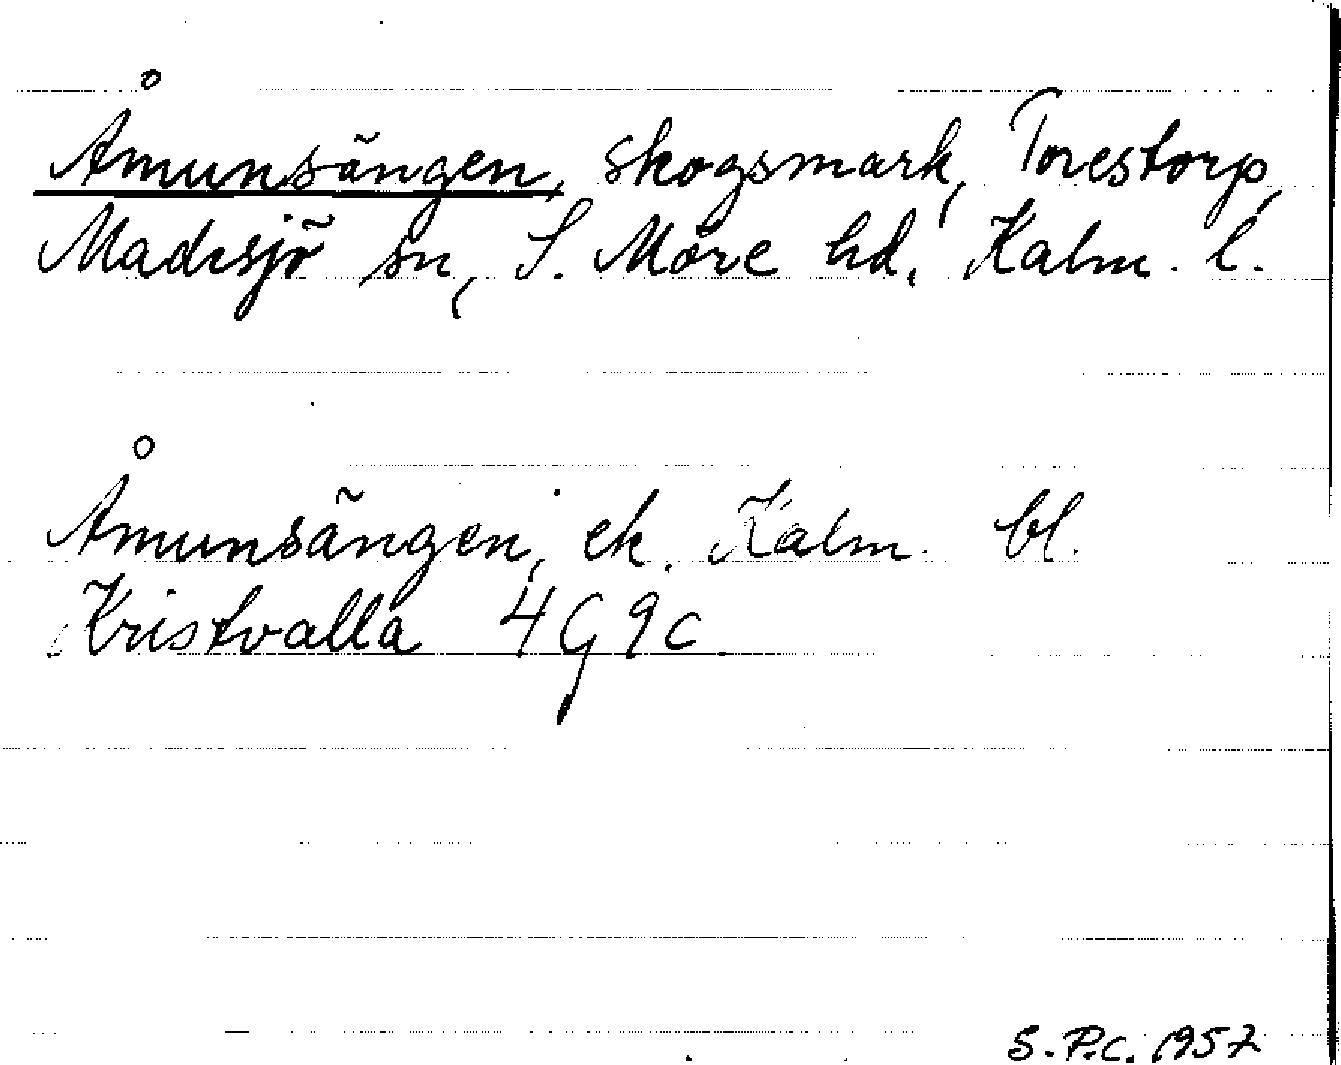 Åmunsängen, skogsmark, Torestorp,
Madesjö sn, S. Möre hd, Kalm. l.
Åmunsängen, ek. Kalm. bl.
Kristvalla 4G9c
S.P.C. 1957